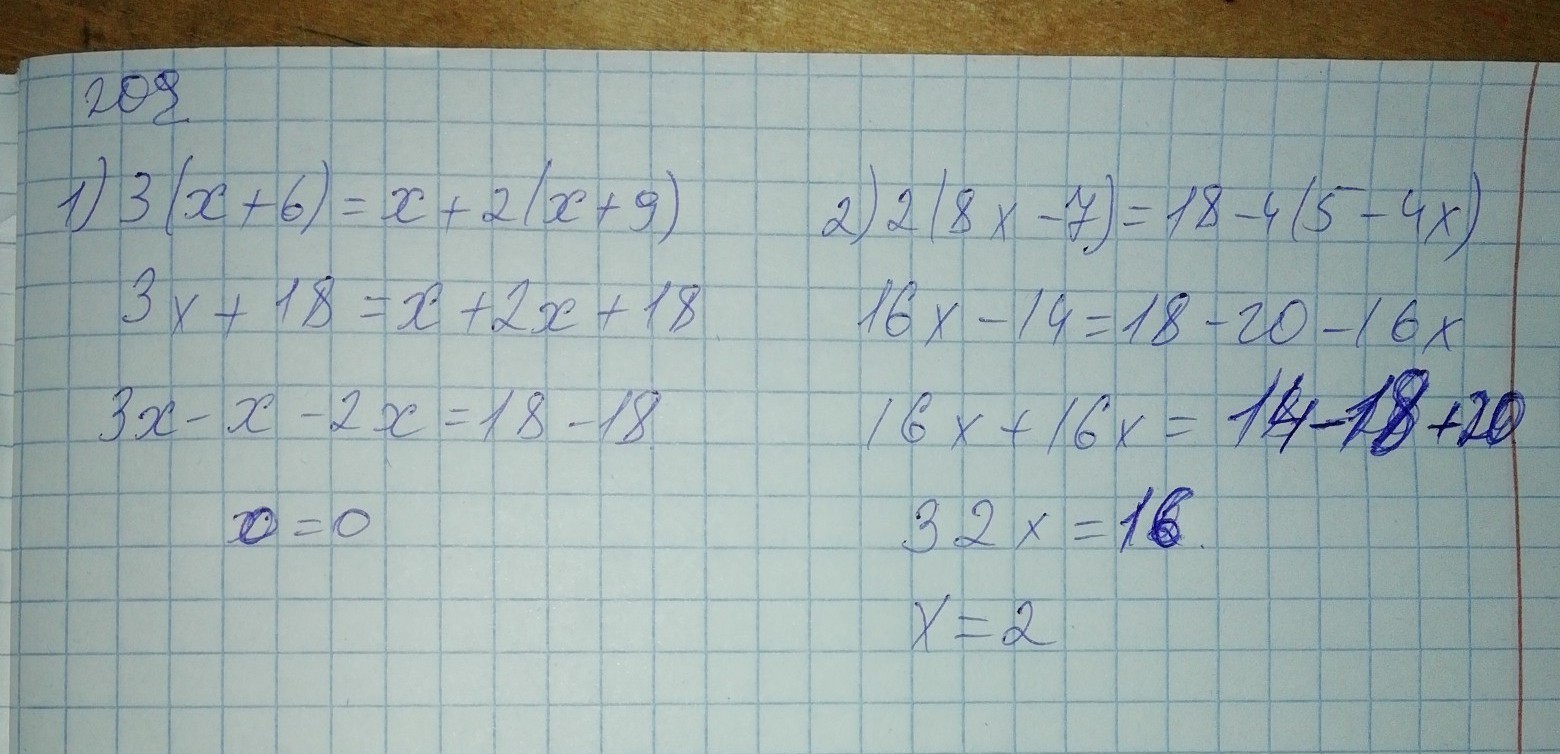 209
1) 3(x+6)=x+2(x+9)
3x+18=x+2x+18
3x-x-2x=18-18
x=0
2) 2(8x-7)=18-4(5-4x)
16x-14=18-20-16x
16x+16x=14-18+20
32x=16.
x=2